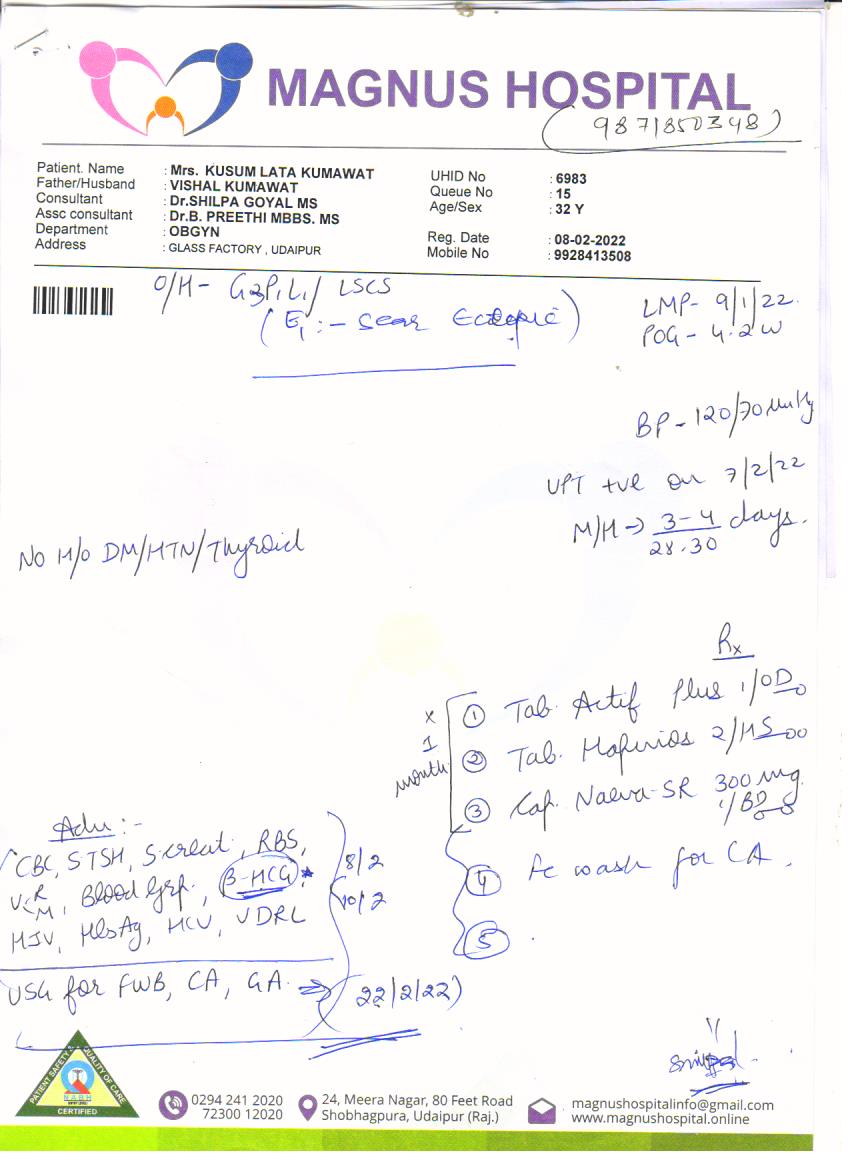 MAGNUS HOSPITAL
(9871850348)
Patient. Name : Mrs. KUSUM LATA KUMAWAT
Father/Husband : VISHAL KUMAWAT
Consultant : Dr.SHILPA GOYAL MS
Assc consultant : Dr.B. PREETHI MBBS. MS
Department : OBGYN
Address : GLASS FACTORY , UDAIPUR
UHID No : 6983
Queue No : 15
Age/Sex : 32 Y
Reg. Date : 08-02-2022
Mobile No : 9928413508
O/H- G3P1L1/ LSCS
(E1:- Scar Ectopic)
LMP- 9/1/22.
POG- 4.2 W
BP- 120/70 mmHg
UPT +ve on 7/2/22
M/H → 3-4 days.
28-30
NO H/O DM/HTN/Thyroid
Rx
① Tab. Actif Plus 1/OD
② Tab. 2/HS
③ Cap. SR 300 mg
1/BD
x
1
month
④ wash for CA.
⑤ .
Adv:-
CBC, S.TSH, S.creat, RBS,
U R/M, Blood Grp, β-HCG*
HIV, HbsAg, HCV, VDRL
8/2
10/2
USG for FWB, CA, GA. ⇒ 22/2/22)
PATIENT SAFETY & QUALITY OF CARE
NABH
CERTIFIED
0294 241 2020
72300 12020
24, Meera Nagar, 80 Feet Road
Shobhagpura, Udaipur (Raj.)
magnushospitalinfo@gmail.com
www.magnushospital.online